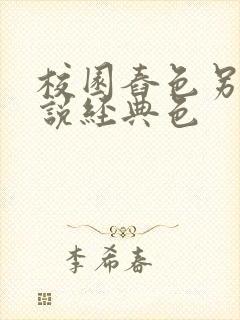 校園春色另
說經典色
李希春